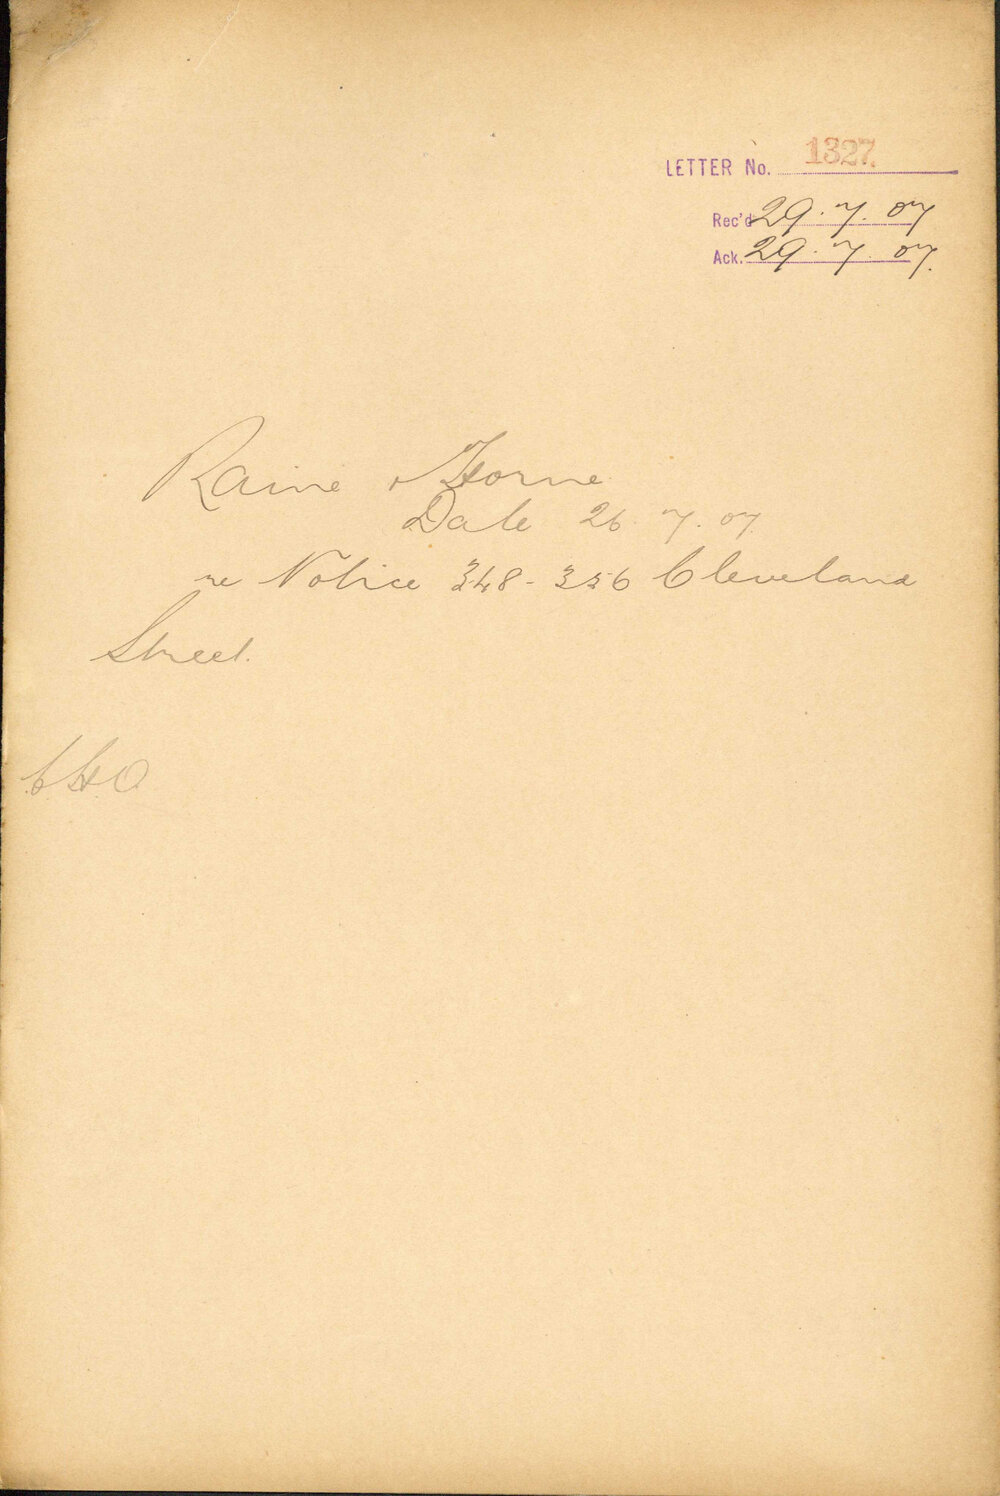 LETTER No. 1327.
Rec'd 29.7.07
Ack. 29.7.07.
Raine & Horne
Date 26.7.07.
re Notice 348-356 Cleveland
Street.
CHO